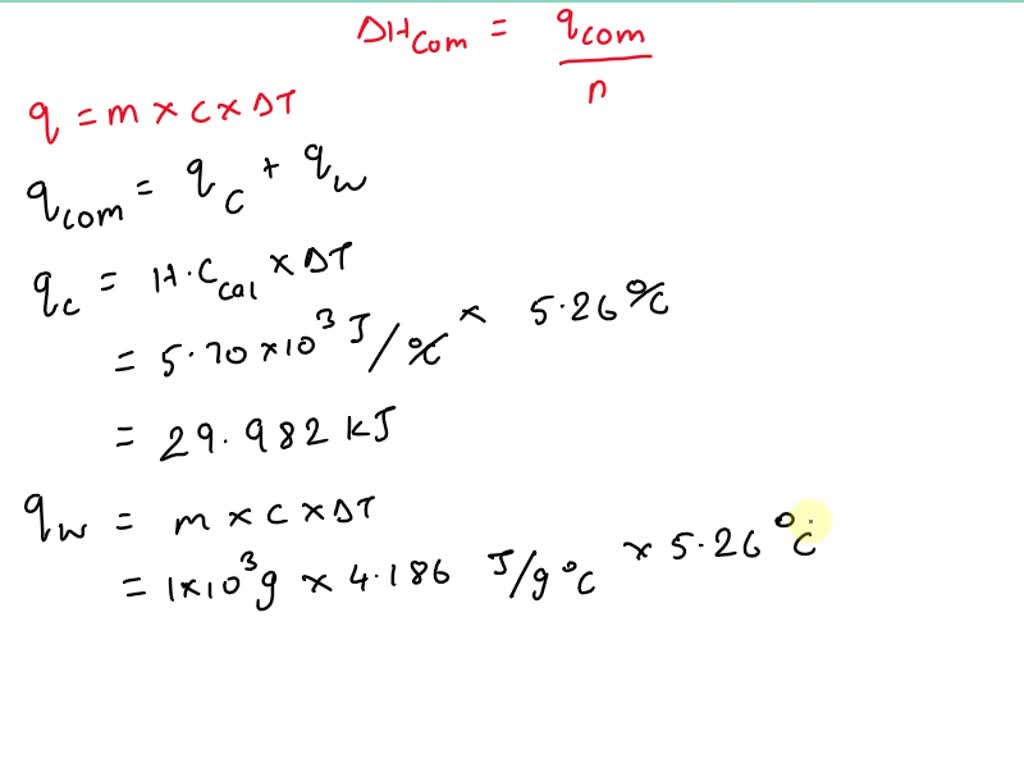 ΔH_com = q_com / n
q = m × c × ΔT
q_com = q_c + q_w
q_c = H.C_cal × ΔT
= 5.70 × 10³ J/°C × 5.26 °C
= 29.982 kJ
q_w = m × c × ΔT
= 1×10³g × 4.186 J/g°C × 5.26 °C